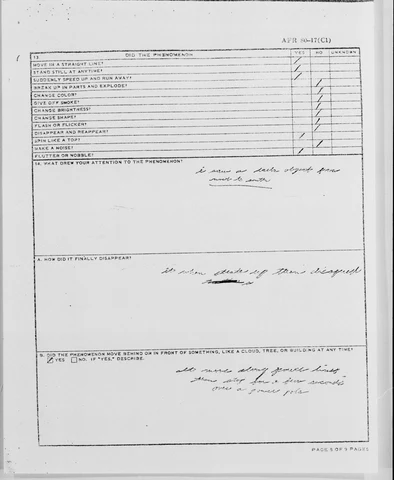 AFR 80-17(C1)
13. DID THE PHENOMENON YES NO UNKNOWN
MOVE IN A STRAIGHT LINE? /
STAND STILL AT ANYTIME? /
SUDDENLY SPEED UP AND RUN AWAY? /
BREAK UP IN PARTS AND EXPLODE? /
CHANGE COLOR? /
GIVE OFF SMOKE? /
CHANGE BRIGHTNESS? /
CHANGE SHAPE? /
FLASH OR FLICKER? /
DISAPPEAR AND REAPPEAR? /
SPIN LIKE A TOP? /
MAKE A NOISE? /
FLUTTER OR WOBBLE? /
14. WHAT DREW YOUR ATTENTION TO THE PHENOMENON?
saw a dark object from
to south
A. HOW DID IT FINALLY DISAPPEAR?
it up then
B. DID THE PHENOMENON MOVE BEHIND OR IN FRONT OF SOMETHING, LIKE A CLOUD, TREE, OR BUILDING AT ANY TIME?
YES NO. IF "YES," DESCRIBE.
along power lines
stop for a few seconds
over a power pole
PAGE 5 OF 9 PAGES